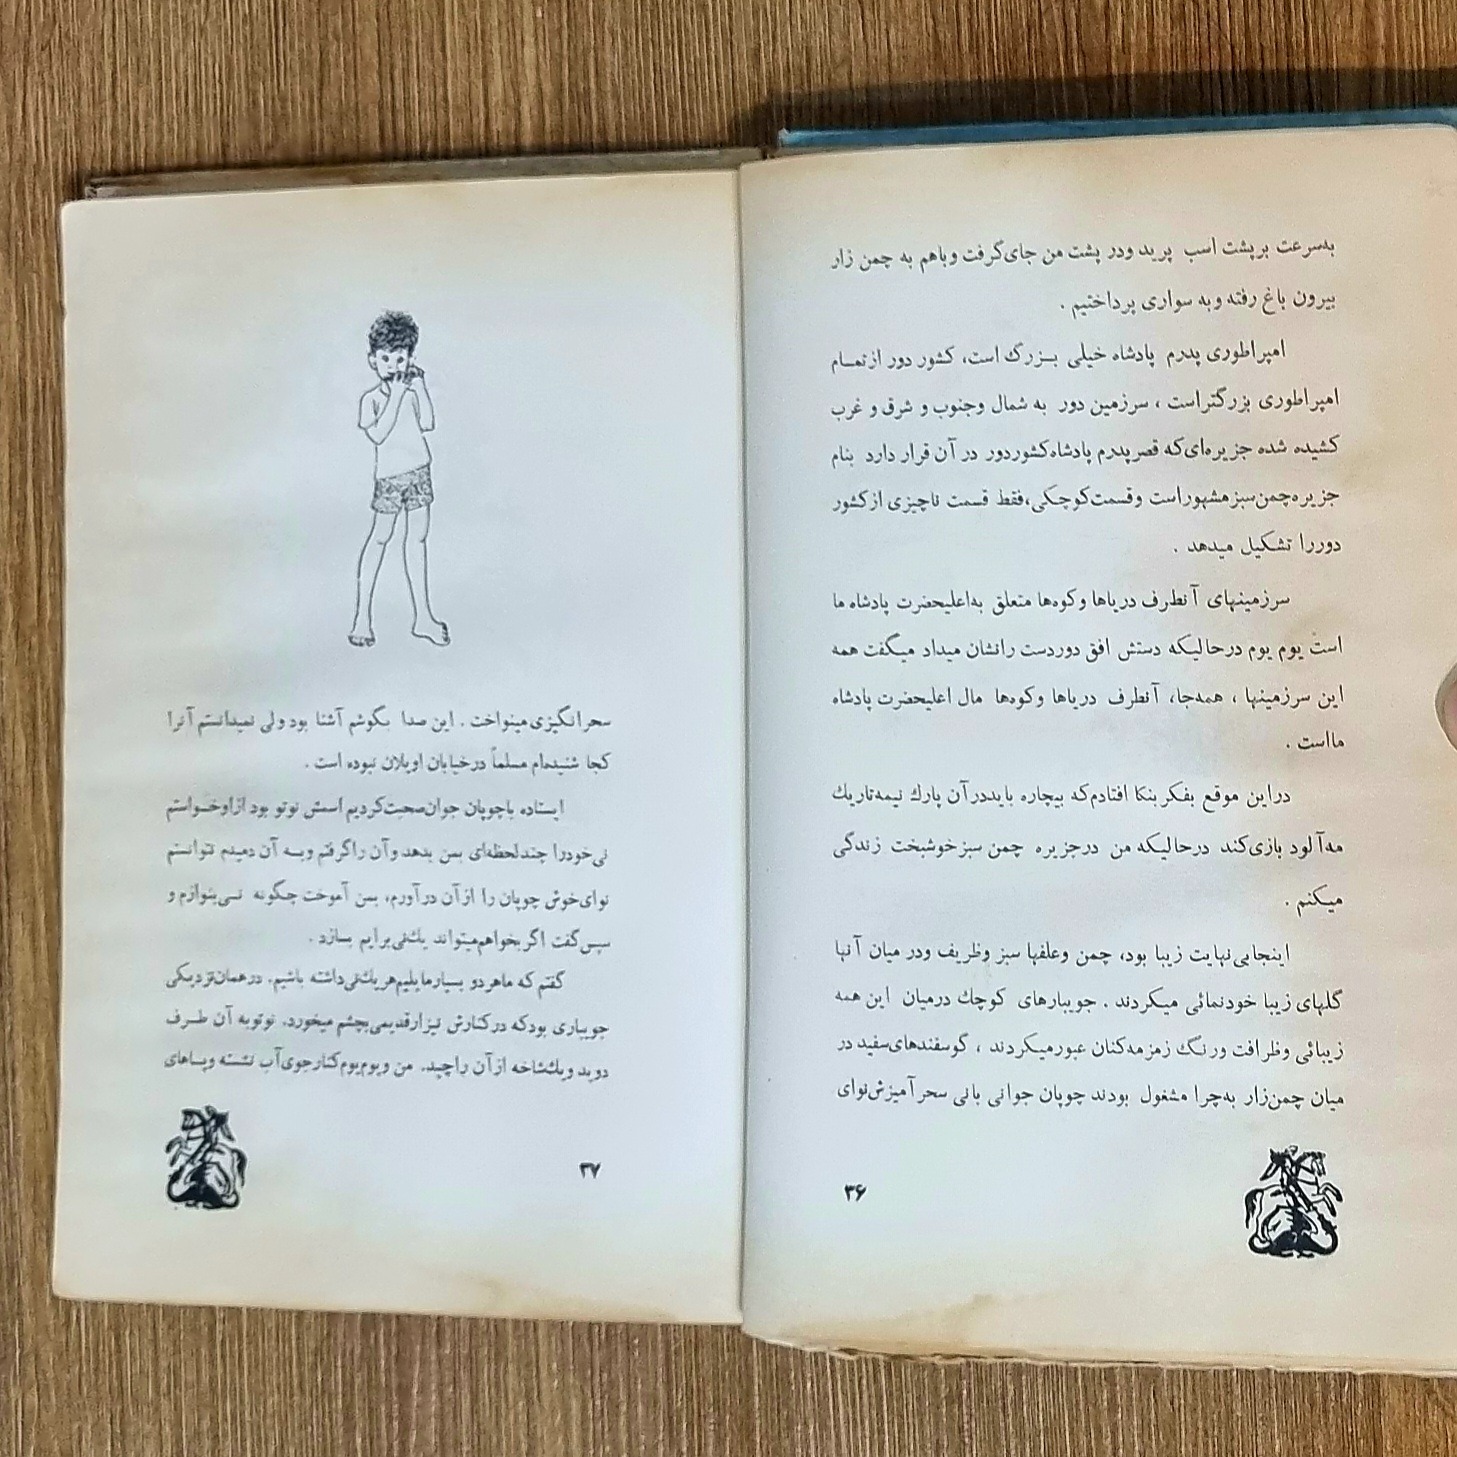 به‌سرعت برپشت اسب پرید ودر پشت من جای‌گرفت وباهم به چمن زار
بیرون باغ رفته وبه سواری پرداختیم .
امپراطوری پدرم پادشاه خیلی بـزرگ است، کشور دور ازتمـام
امپراطوری بزرگتراست ، سرزمین دور به شمال وجنوب و شرق و غرب
کشیده شده جزیره‌ای‌که قصرپدرم پادشاه‌کشوردور در آن قرار دارد بنام
جزیره‌چمن‌سبزمشهوراست وقسمت‌کوچکی،فقط قسمت ناچیزی ازکشور
دوررا تشکیل میدهد .
سرزمینهای آنطرف دریاها وکوه‌ها متعلق به‌اعلیحضرت پادشاه ما
است یوم یوم درحالیکه دستش افق دوردست رانشان میداد میگفت همه
این سرزمینها ، همه‌جا، آنطرف دریاها وکوه‌ها مال اعلیحضرت پادشاه
مااست .
دراین موقع بفکربنکا افتادم‌که بیچاره بایددرآن پارك نیمه‌تاریك
مه‌آلود بازی‌کند درحالیکه من درجزیره چمن سبزخوشبخت زندگی
میکنم .
اینجابی‌نهایت زیبا بود، چمن وعلفها سبز وظریف ودر میان آنها
گلهای زیبا خودنمائی میکردند . جویبارهای کوچك درمیان این همه
زیبائی وظرافت ورنگ زمزمه‌کنان عبورمیکردند ، گوسفندهای‌سفید در
میان چمن‌زار به‌چرا مشغول بودند چوپان جوانی بانی سحرآمیزش‌نوای
۳۶
سحرانگیزی مینواخت . این صدا بگوشم آشنا بود ولی نمیدانستم آنرا
کجا شنیده‌ام مسلماً درخیابان اوپلان نبوده است .
ایستاده باچوپان جوان‌صحبت‌کردیم اسمش نوتو بود ازاوخـواستم
نی‌خودرا چندلحظه‌ای بمن بدهد وآن راگرفتم وبـه آن دمیدم نتوانستم
نوای‌خوش چوپان را ازآن درآورم، بمن آموخت چگونه نـی‌بنوازم و
سپس‌گفت اگربخواهم‌میتواند یك‌نی‌برایم بسازد .
گفتم که ماهردو بسیارمایلیم‌هریك‌نی‌داشته باشیم. درهمان‌نزدیکی
جویباری بودکه درکنارش نیزارقدیمی‌بچشم میخورد. نوتوبه آن طـرف
دوید ویك‌شاخه ازآن راچید. من ویوم‌یوم‌کنارجوی‌آب نشسته وپـاهای
۳۷